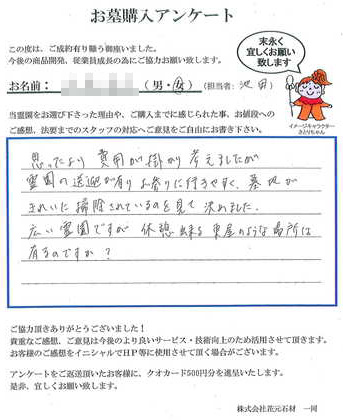 お墓購入アンケート
この度は、ご成約有り難う御座いました。
今後の商品開発、従業員成長の為にご協力お願い致します。
末永く
宜しくお願い
致します
お名前： (男・女) (担当者: 池田)
当霊園をお選び下さった理由や、ご購入までに感じられた事、お値段への
ご感想、法要までのスタッフの対応へご意見をご自由にお書き下さい。
イメージキャラクター
さとりちゃん
思ったより 費用が掛かり 考えましたが
霊園の送迎が有り お参りに行きやすく、墓地が
きれいに掃除されているのを見て 決めました。
広い霊園ですが 休憩出来る 東屋のような場所は
有るのですか？
ご協力頂きありがとうございました！
貴重なご感想、ご意見は今後のより良いサービス・技術向上のため活用させて頂きます。
お客様のご感想をイニシャルでＨＰ等に使用させて頂く場合がございます。
アンケートをご返送頂いたお客様に、クオカード500円分を進呈いたします。
是非、宜しくお願い致します。
株式会社花元石材 一同